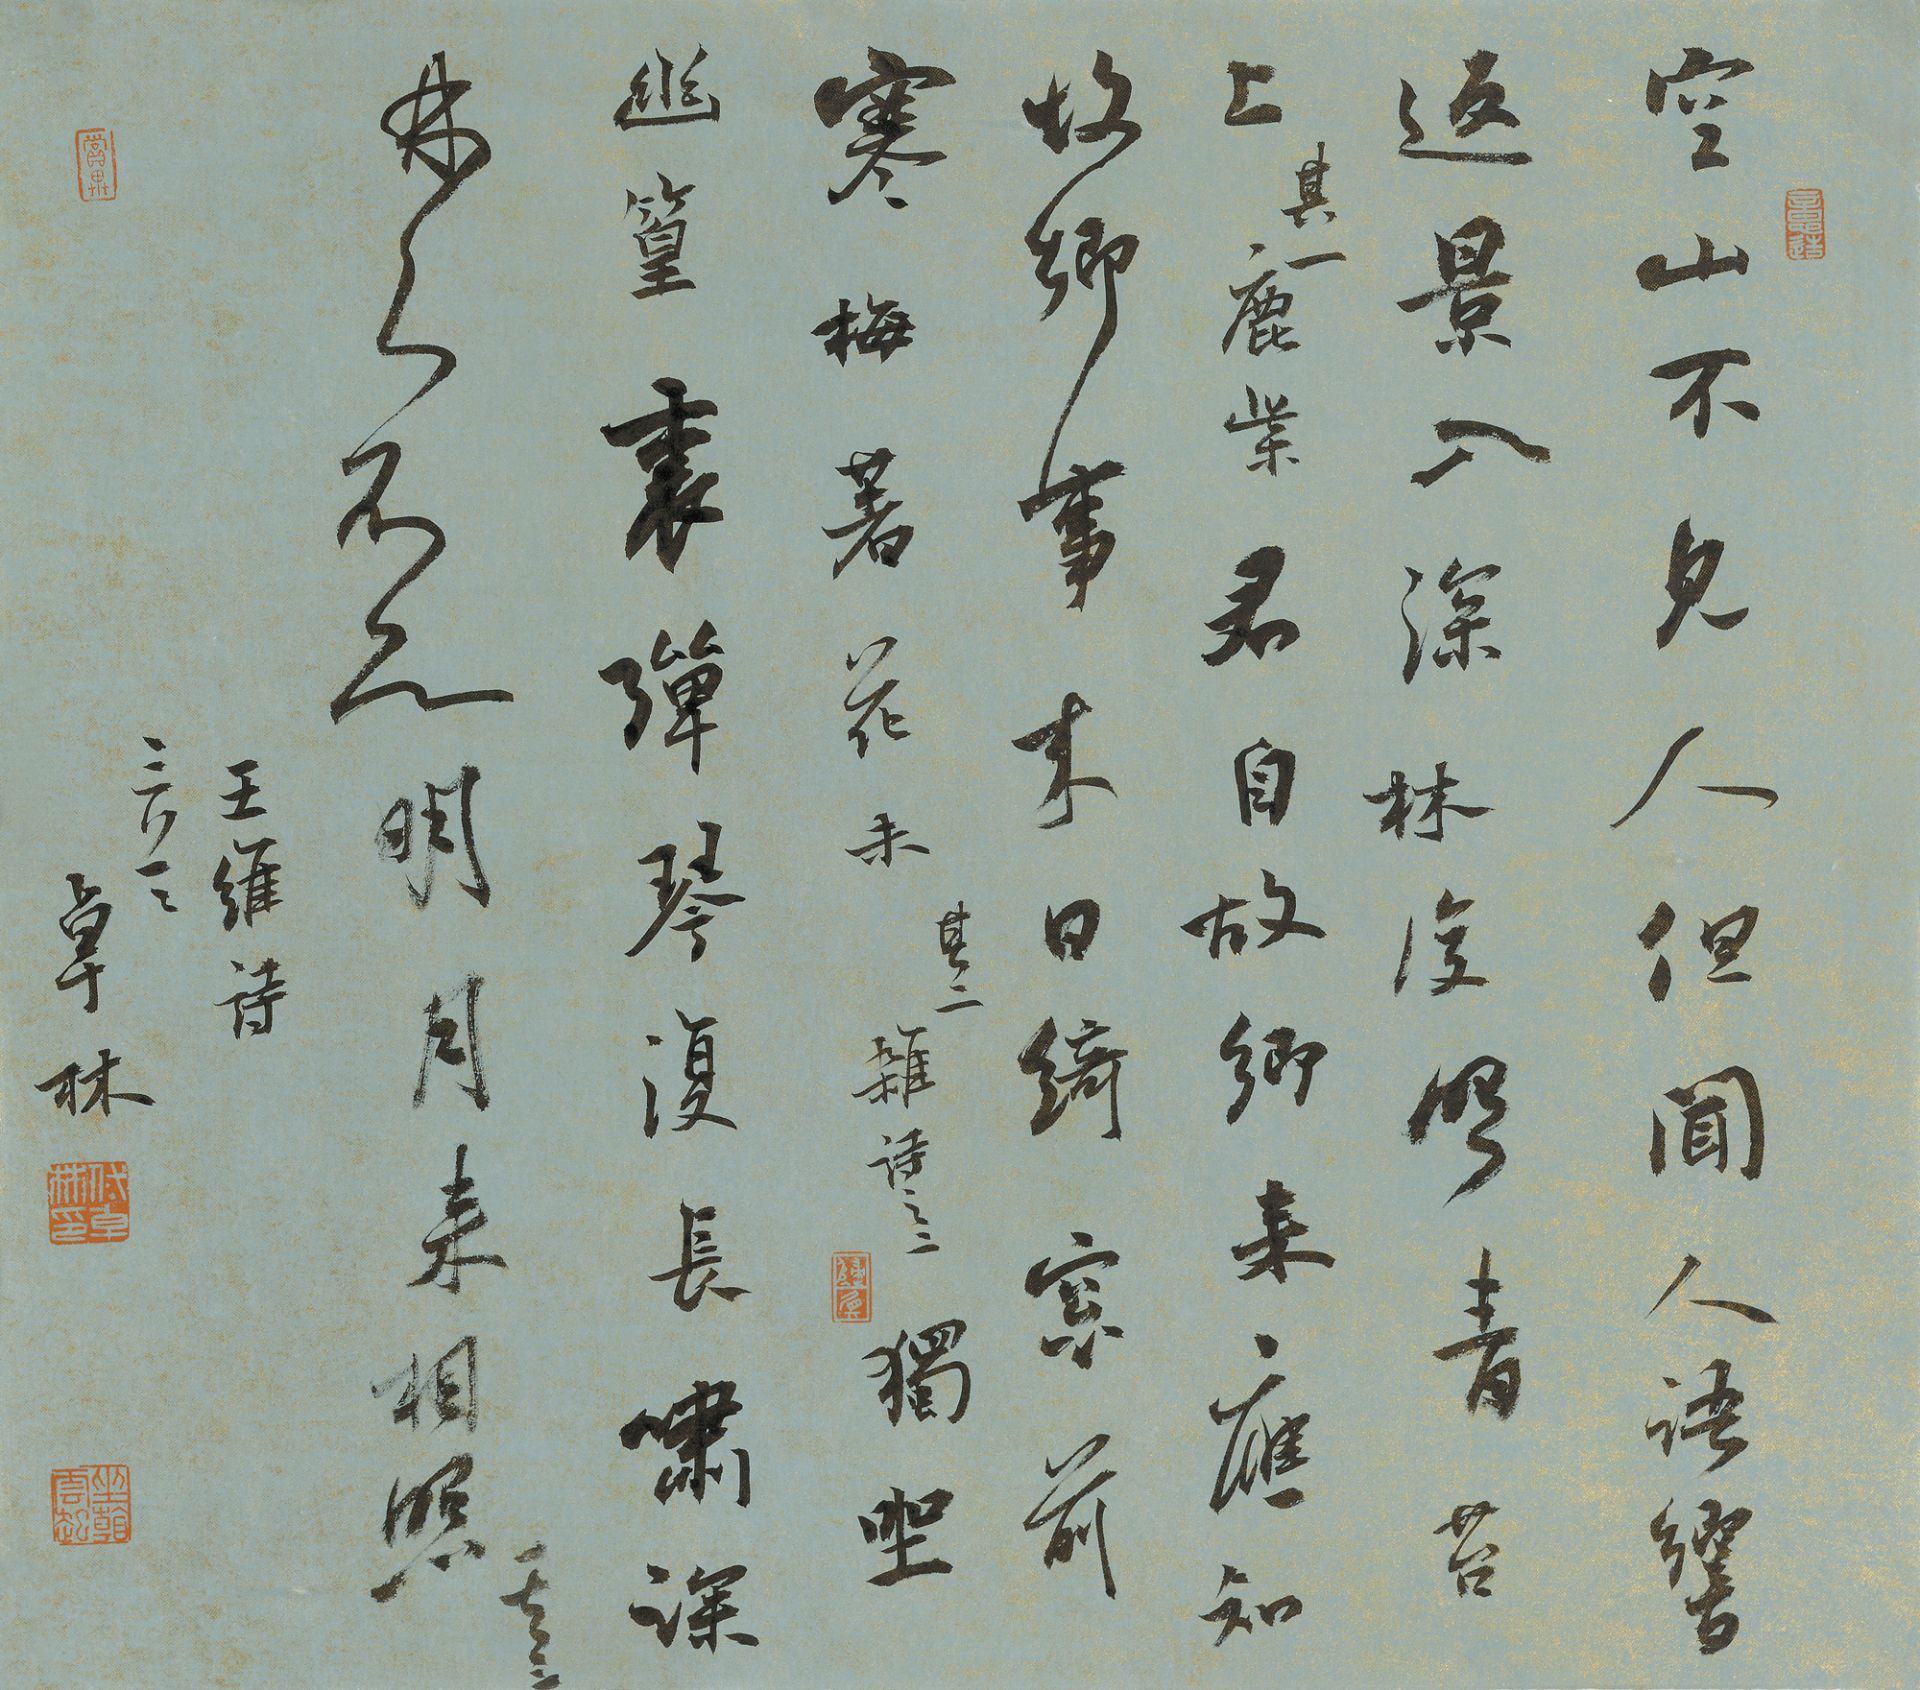 空山不見人但聞人語響
返景入深林復照青苔
上 其一 鹿柴 君自故鄉來應知
故鄉事來日綺窗前
寒梅著花未 其二 雜詩之二 獨坐
幽篁裏彈琴復長嘯深
林人不知明月來相照 其三
王維詩
卓林